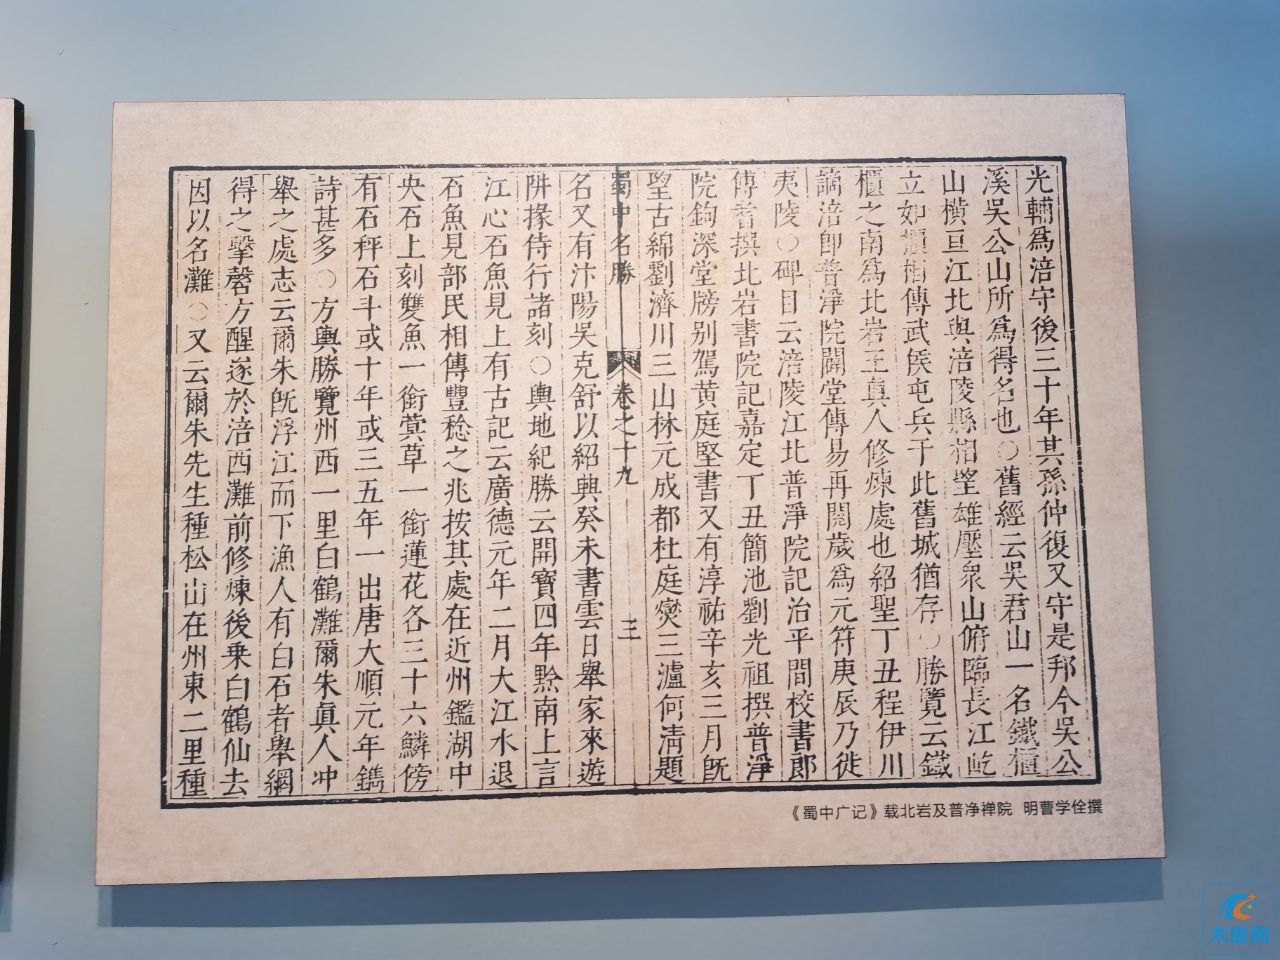 光輔爲涪守後三十年其孫仲復又守是邦今吳公
溪吳公山所爲得名也○舊經云吳君山一名鐵櫃
山橫亘江北與涪陵縣相望雄壓衆山俯臨長江屹
立如櫃相傳武侯屯兵于此舊城猶存○勝覽云鐵
櫃之南爲北岩王真人修煉處也紹聖丁丑程伊川
謫涪卽普淨院闢堂傳易再閱歲爲元符庚辰乃徙
夷陵○碑目云涪陵江北普淨院記治平間校書郎
傅耆撰北岩書院記嘉定丁丑簡池劉光祖撰普淨
院鉤深堂牓别駕黄庭堅書又有淳祐辛亥三月旣
望古綿劉濟川三山林元成都杜庭爕三瀘何清題
蜀中名勝 卷之十九 三
名又有汴陽吳克舒以紹興癸未書雲日舉家來遊
阱掾侍行諸刻○輿地紀勝云開寶四年黔南上言
江心石魚見上有古記云廣德元年二月大江水退
石魚見部民相傳豐稔之兆按其處在近州鑑湖中
央石上刻雙魚一銜蓂草一銜蓮花各三十六鱗傍
有石秤石斗或十年或三五年一出唐大順元年鐫
詩甚多○方輿勝覽州西一里白鶴灘爾朱眞人冲
舉之處志云爾朱旣浮江而下漁人有白石者舉網
得之擊磬方醒遂於涪西灘前修煉後乗白鶴仙去
因以名灘○又云爾朱先生種松山在州東二里種
《蜀中广记》载北岩及普净禅院 明曹学佺撰